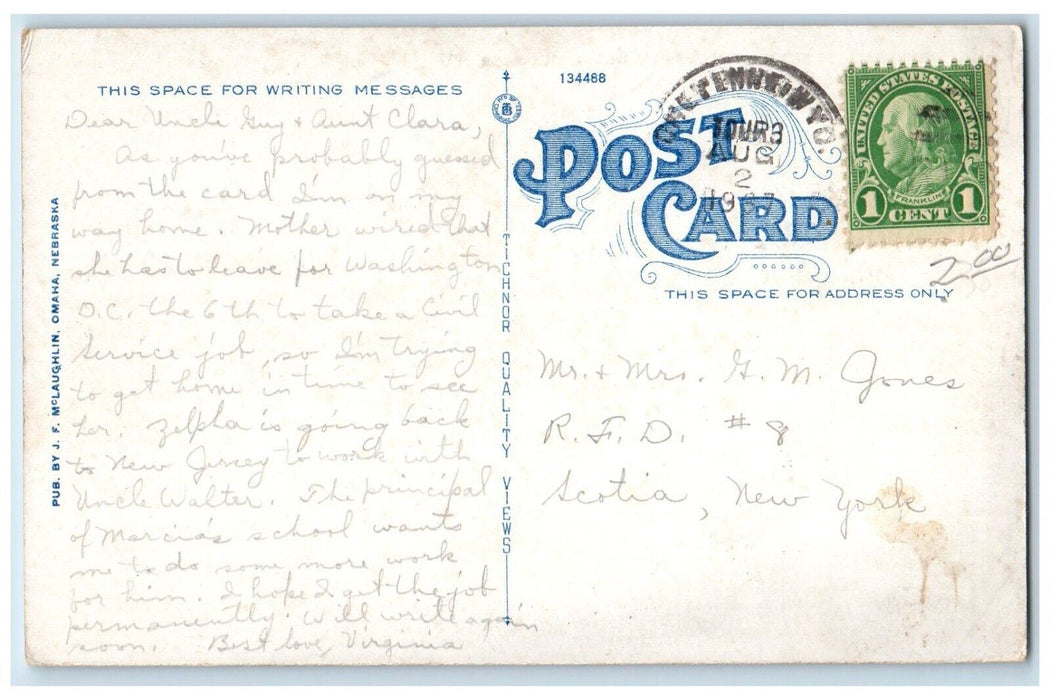 THIS SPACE FOR WRITING MESSAGES
Dear Uncle Guy & Aunt Clara,
As you've probably guessed
from the card I'm on my
way home. Mother wired that
she has to leave for Washington
D.C. the 6th to take a Civil
Service job, so I'm trying
to get home in time to see
her. Zelpha is going back
to New Jersey to work with
Uncle Walter. The principal
of Marcia's school wants
me to do some more work
for him. I hope I get the job
permanently. Will write again
soon. Best love, Virginia
PUB. BY J. F. McLAUGHLIN, OMAHA, NEBRASKA
TICHNOR QUALITY VIEWS
134488
POST
CARD
AUG
2
UNITED STATES POSTAGE
FRANKLIN
1 CENT 1
2.00
THIS SPACE FOR ADDRESS ONLY
Mr. & Mrs. G. M. Jones
R. F. D. #8
Scotia, New York